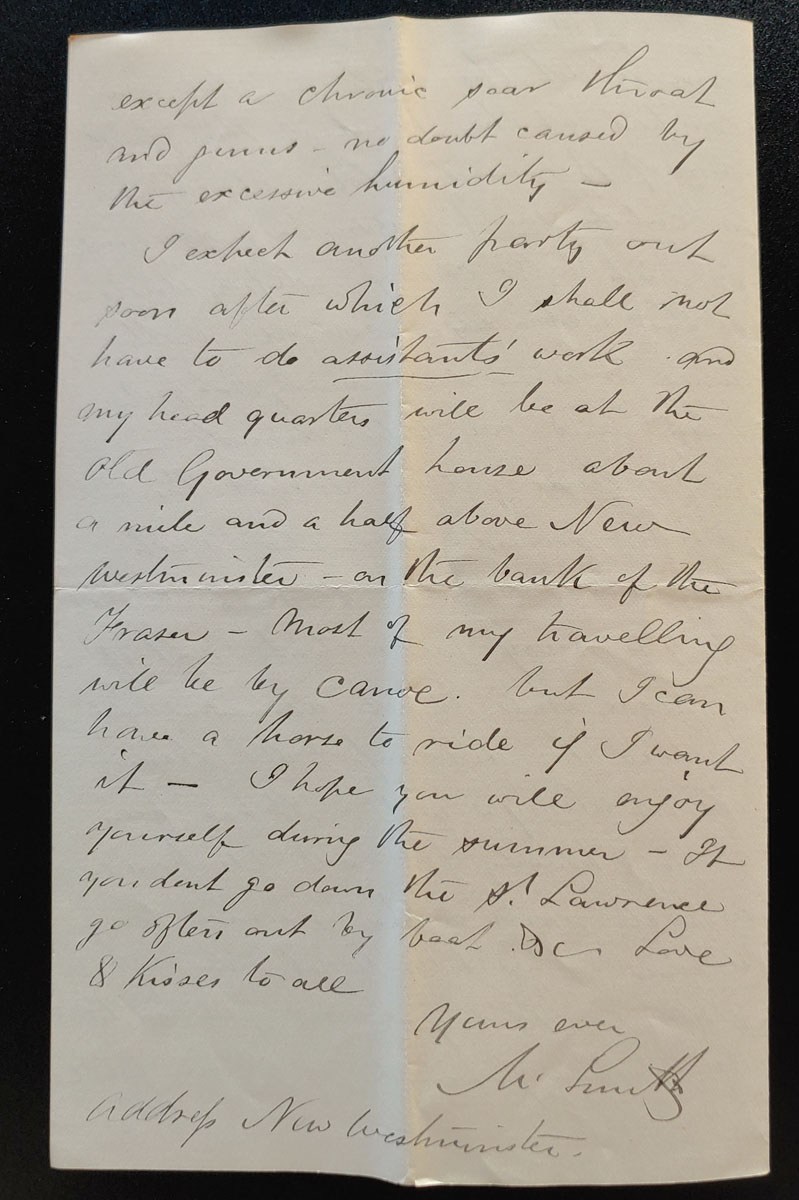 except a chronic soar throat
and - no doubt caused by
the excessive humidity -
I expect another party out
soon after which I shall not
have to do assistants' work and
my head quarters will be at the
Old Government house about
a mile and a half above New
Westminster - on the bank of the
Fraser - Most of my travelling
will be by canoe. but I can
have a horse to ride if I want
it - I hope you will enjoy
yourself during the summer - If
you dont go down the St Lawrence
go often out by boat &c Love
& Kisses to all
Yours ever
Smith
Address New Westminster.